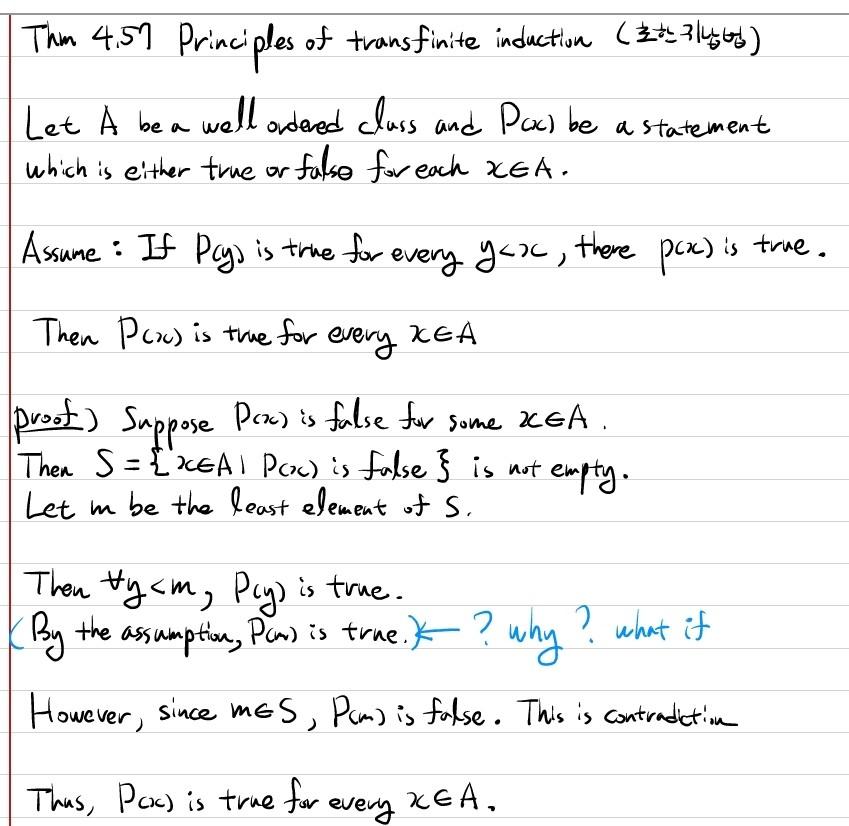 Thm 4.57 Principles of transfinite induction (초한귀납법)
Let A be a well ordered class and P(x) be a statement
which is either true or false for each x∈A.
Assume : If P(y) is true for every y<x, there p(x) is true.
Then P(x) is true for every x∈A
proof) Suppose P(x) is false for some x∈A.
Then S = { x∈A | P(x) is false } is not empty.
Let m be the least element of S.
Then ∀y<m, P(y) is true.
(By the assumption, P(m) is true.) ← ? why ? what if
However, since m∈S, P(m) is false. This is contradiction
Thus, P(x) is true for every x∈A.